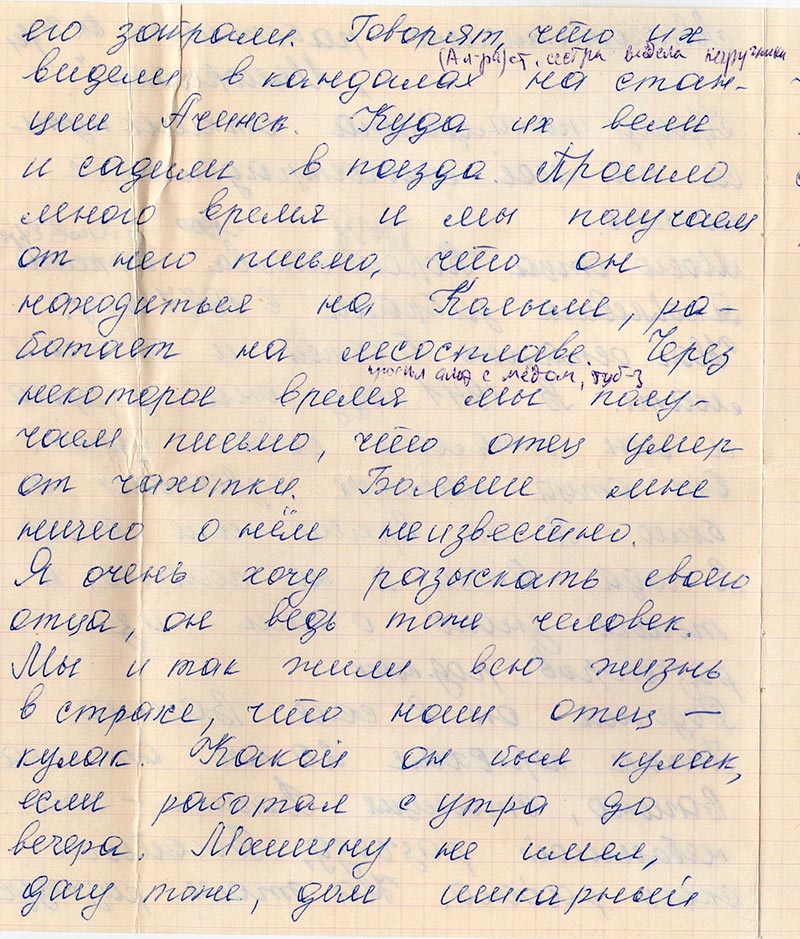 его забрали. Говорят, что их
(Ал-ра) ст. сестра видела наручники
видели в кандалах на стан-
ции Ачинск. Куда их вели
и садили в поезда. Прошло
много время и мы получаем
от него письмо, что он
находиться на Колыме, ра-
ботает на лесосплаве. Через
просил алоэ с мёдом, туб-з
некоторое время мы полу-
чаем письмо, что отец умер
от чахотки. Больше мне
ничего о нём неизвестно.
Я очень хочу разыскать своего
отца, он ведь тоже человек.
Мы и так жили всю жизнь
в страхе, что наш отец —
кулак. Какой он был кулак,
если работал с утра до
вечера. Машину не имел,
дачу тоже, дом шикарный